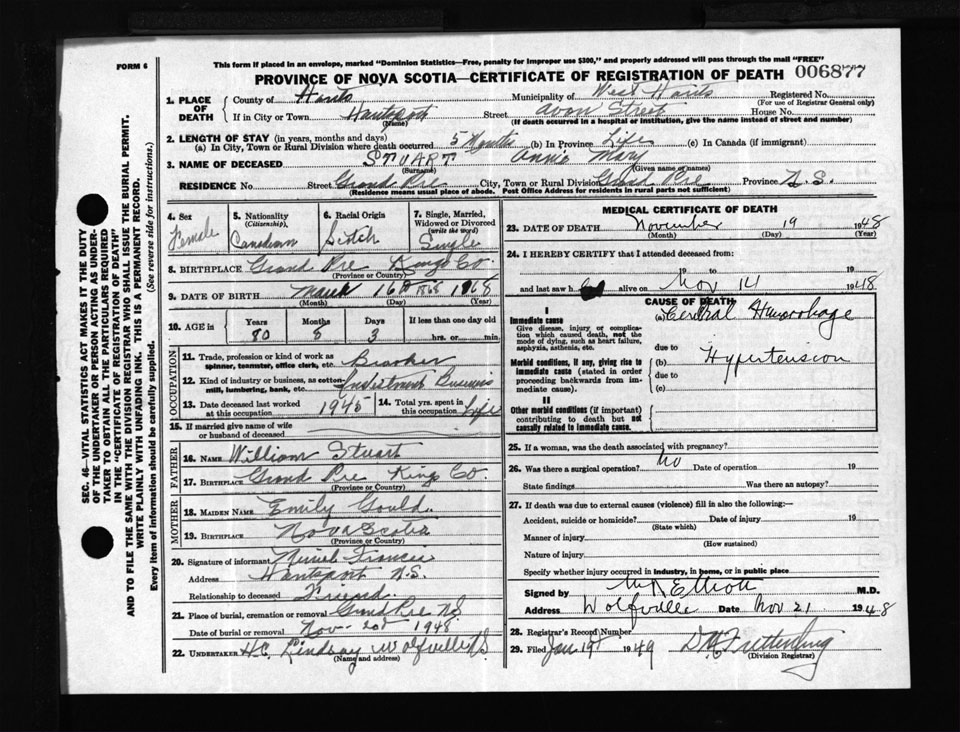 FORM 6
This form if placed in an envelope, marked "Dominion Statistics—Free, penalty for improper use $300," and properly addressed will pass through the mail "FREE"
PROVINCE OF NOVA SCOTIA—CERTIFICATE OF REGISTRATION OF DEATH 006877
SEC. 46—VITAL STATISTICS ACT MAKES IT THE DUTY
OF THE UNDERTAKER OR PERSON ACTING AS UNDER-
TAKER TO OBTAIN ALL THE PARTICULARS REQUIRED
IN THE "CERTIFICATE OF REGISTRATION OF DEATH"
AND TO FILE THE SAME WITH THE DIVISION REGISTRAR WHO SHALL ISSUE THE BURIAL PERMIT.
WRITE PLAINLY WITH UNFADING INK. THIS IS A PERMANENT RECORD.
Every item of information should be carefully supplied. (See reverse side for instructions.)
1. PLACE OF DEATH County of Hants Municipality of West Hants Registered No.
(For use of Registrar General only)
If in City or Town Hantsport Street Avon Street House No.
(Name) (If death occurred in a hospital or institution, give the name instead of street and number)
2. LENGTH OF STAY (in years, months and days)
(a) In City, Town or Rural Division where death occurred 5 Months (b) In Province Life (c) In Canada (if immigrant)
3. NAME OF DECEASED STUART Annie Mary
(Surname) (Given name or names)
RESIDENCE No. Street Grand Pre City, Town or Rural Division Grand Pre Province N.S.
(Residence means usual place of abode. Post Office Address for residents in rural parts not sufficient)
4. Sex Female
5. Nationality (Citizenship) Canadian
6. Racial Origin Scotch
7. Single, Married, Widowed or Divorced (write the word) Single
8. BIRTHPLACE Grand Pre Kings Co.
(Province or Country)
9. DATE OF BIRTH March 16th 1868 1868
(Month) (Day) (Year)
10. AGE in Years Months Days If less than one day old
80 8 3 hrs. or min.
OCCUPATION
11. Trade, profession or kind of work as spinner, teamster, office clerk, etc. Broker
12. Kind of industry or business, as cotton-mill, lumbering, bank, etc. Investment Business
13. Date deceased last worked at this occupation 1945
14. Total yrs. spent in this occupation Life
15. If married give name of wife or husband of deceased
FATHER
16. NAME William Stuart
17. BIRTHPLACE Grand Pre Kings Co.
(Province or Country)
MOTHER
18. MAIDEN NAME Emily Gould
19. BIRTHPLACE Nova Scotia
(Province or Country)
20. Signature of informant
Address Hantsport N.S.
Relationship to deceased Friend
21. Place of burial, cremation or removal Grand Pre NS
Date of burial or removal Nov. 20th 1948
22. UNDERTAKER H.C. Lindsay Wolfville NS
(Name and address)
MEDICAL CERTIFICATE OF DEATH
23. DATE OF DEATH November 19 1948
(Month) (Day) (Year)
24. I HEREBY CERTIFY that I attended deceased from:
19 to 19
and last saw h alive on Nov 14 1948
CAUSE OF DEATH
I
Immediate cause
Give disease, injury or complication which caused death, not the mode of dying, such as heart failure, asphyxia, asthenia, etc.
(a) Cerebral Hemorrhage
due to
Morbid conditions, if any, giving rise to immediate cause (stated in order proceeding backwards from immediate cause).
(b) Hypertension
due to
(c)
II
Other morbid conditions (if important) contributing to death but not causally related to immediate cause.
25. If a woman, was the death associated with pregnancy?
26. Was there a surgical operation? No Date of operation 19
State findings Was there an autopsy?
27. If death was due to external causes (violence) fill in also the following:—
Accident, suicide or homicide? Date of injury 19
(State which)
Manner of injury
(How sustained)
Nature of injury
Specify whether injury occurred in industry, in home, or in public place
Signed by Elliott M.D.
Address Wolfville Date Nov 21 1948
28. Registrar's Record Number
29. Filed Jan 19 1949
(Division Registrar)